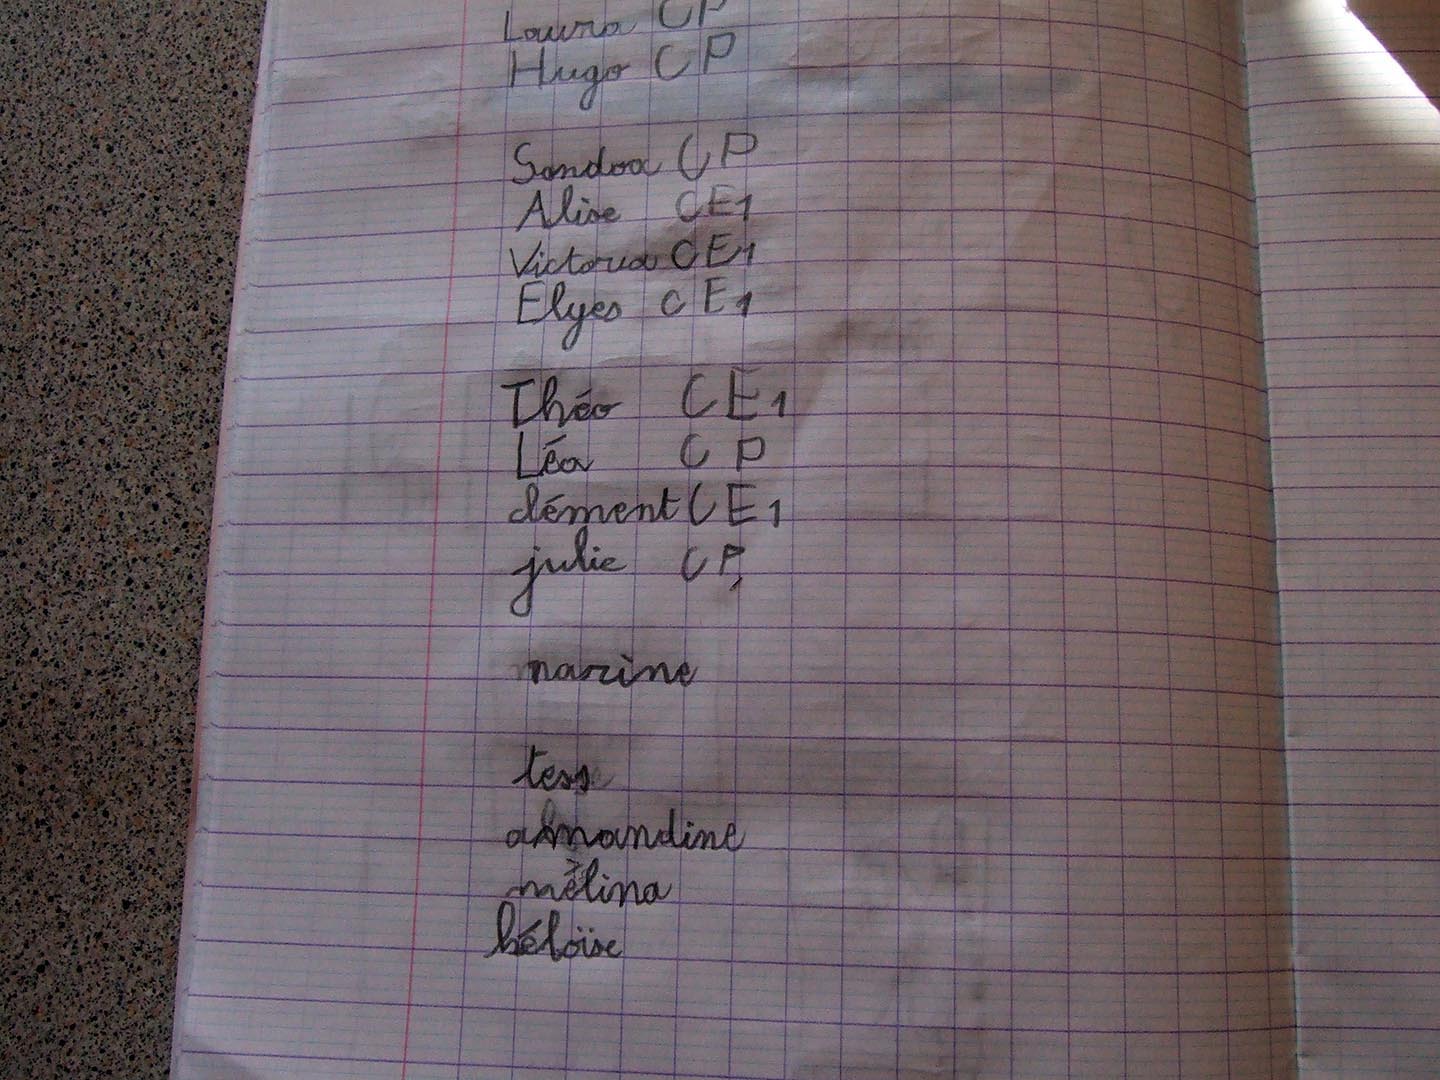 Laura CP
Hugo CP
Sandra CP
Alise CE1
Victoria CE1
Elyes CE1
Théo CE1
Léa CP
clément CE1
julie CP,
marine
tess
amandine
mélina
héloïse